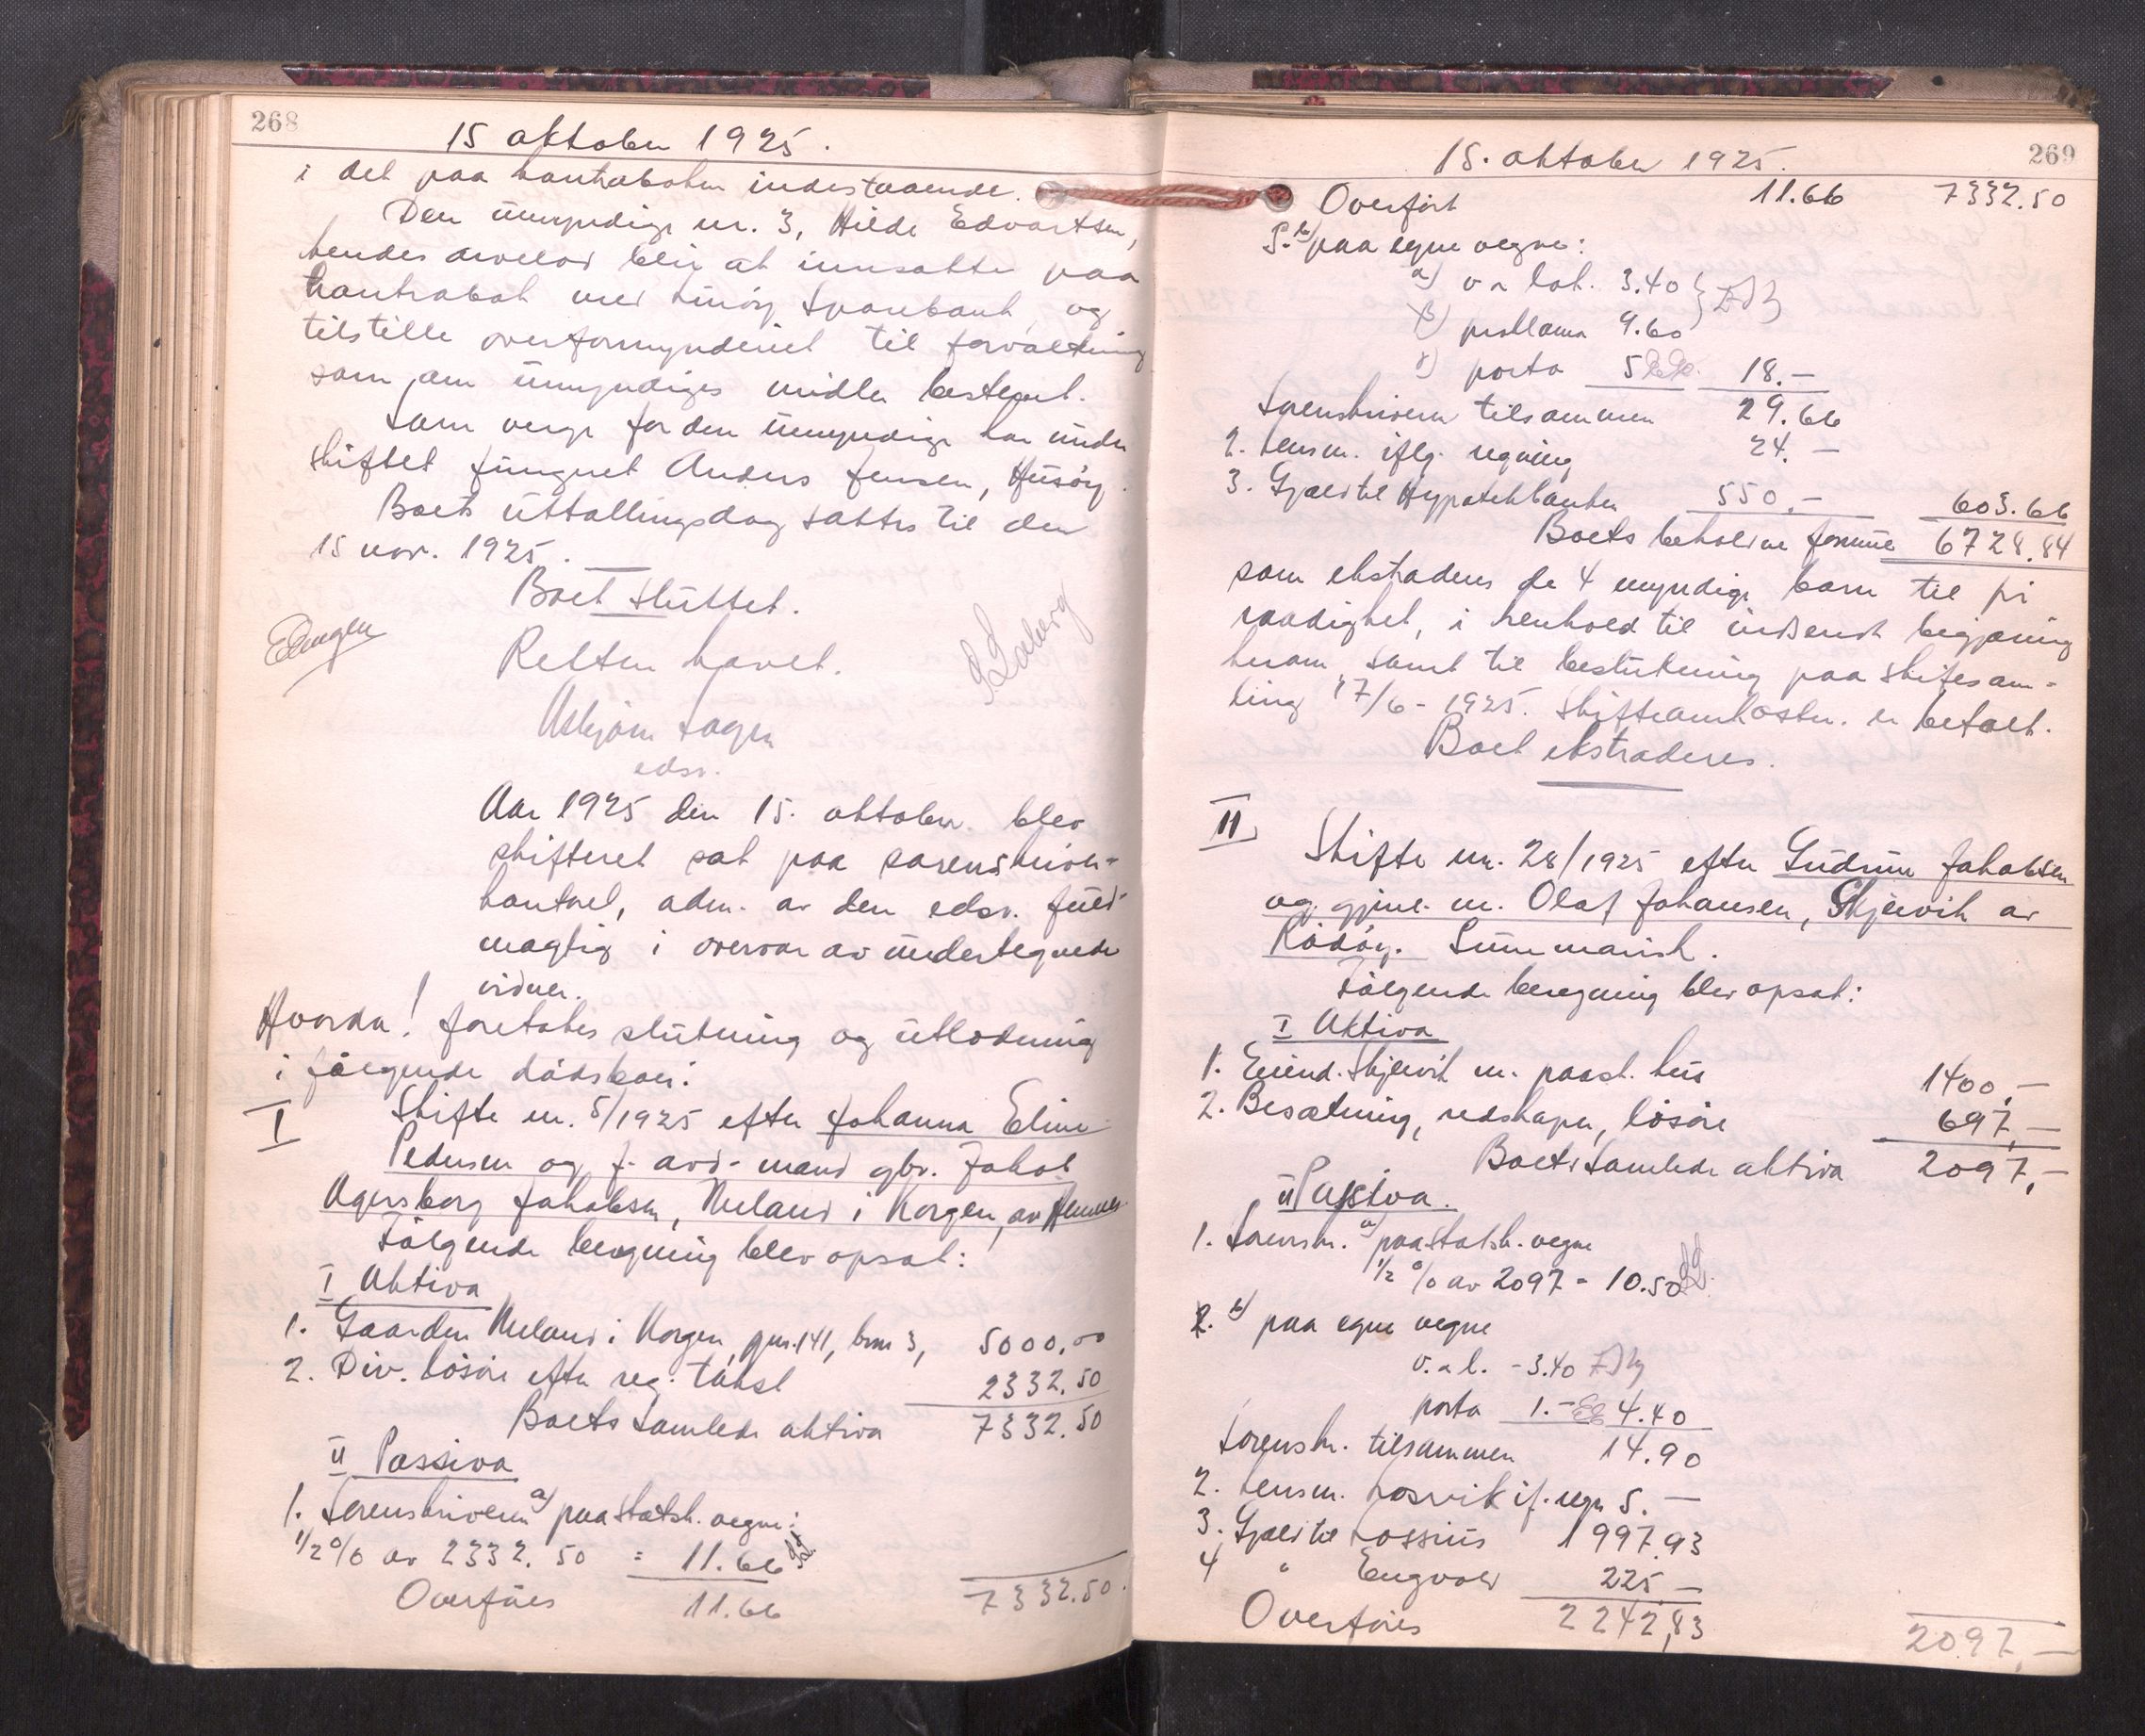 268
15 oktober 1925.
i det paa kontraboken indestaaende.
Den umyndige nr. 3, Hilde Edvartsen,
hendes arvelod blir at innsætte paa
kontrabok med Lurøy Sparebank, og
tilstille overformynderiet til forvaltning
som den umyndiges midler bestemt.
Som verge for den umyndige har under
skiftet fungert Anders Jensen, Husøy.
Boets utlodningsdag sattes til den
15 nov. 1925.
Boet sluttet.
Retten hævet.
Asbjørn Sagen
edsv.
Aar 1925 den 15. oktober blev
skifteret sat paa sorenskriver-
kontoret, adm. av den edsv. fuld-
mægtig i overvær av undertegnede
vidner.
Hvorda! foretokes slutning og utlodning
i følgende dødsboer:
I Skifte nr. 5/1925 efter Johanna Eline
Pedersen og f. avd. mand gbr. Jakob
Agersborg Jakobsen, Neland i Korgen, av Hemnes.
Følgende beregning blev opsat:
I Aktiva
1. Gaarden Neland i Korgen, gnr. 141, bnr 3, 5000,00
2. Div. løsøre efter reg. takst 2332.50
Boets samlede aktiva 7332.50
II Passiva
1. Sorenskriveren a) paa statsk. vegne:
1/2 % av 2332.50 = 11.66
Overføres 11.66 7332.50
269
15. oktober 1925.
Overført 11.66 7332.50
b) paa egne vegne:
a) v. a lok. 3.40
b) proklama 9.60
c) porto 5 18.-
Sorenskriveren tilsammen 29.66
2. Lensm. iflg. regning 24.-
3. Gjæld til Hypotekbanken 550.- 603.66
Boets beholdne formue 6728.84
som ekstraderes de 4 myndige barn til fri
raadighet, i henhold til indsendt begjæring
herom samt til beslutning paa skiftesam-
ling 17/6-1925. Skifteomkostn. er betalt.
Boet ekstraderes.
II Skifte nr. 28/1925 efter Gudrun Jakobsen
og gjenl. m. Olaf Johansen, Skjelvik av
Rødøy. Summarisk.
Følgende beregning blev opsat:
I Aktiva
1. Eiend. Skjelvik m. paast. hus 1400,-
2. Besætning, redskaper, løsøre 697,-
Boets samlede aktiva 2097,-
II Passiva.
1. Sorenskr. a) paa statsk. vegne
1/2 % av 2097 - 10.50
b) paa egne vegne
v. a l. - 3.40
porto 1.- 4.40
Sorenskr. tilsammen 14.90
2. Lensm. Rosvik if. regn 5.-
3. Gjæld til Lossius 1997.93
4 " Engvold 225 -
Overføres 2242,83 2097,-